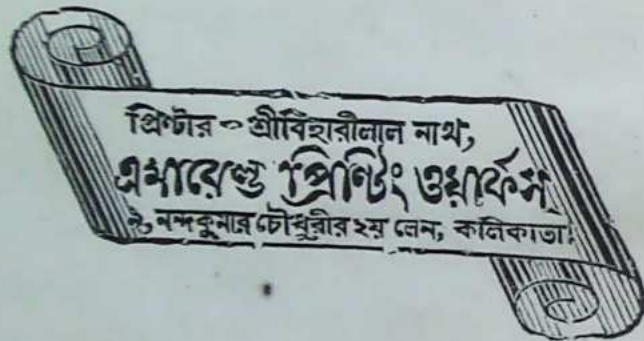 প্রিন্টার - শ্রীবিহারীলাল নাথ,
এমারেল্ড প্রিন্টিং ওয়ার্কস্
৯, নন্দকুমার চৌধুরীর ২য় লেন, কলিকাতা।